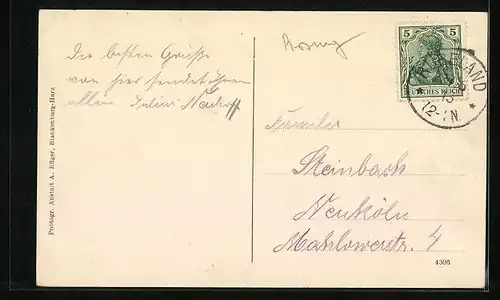 Die besten Grüsse
von hier sendet Ihnen
allen Julius
Photogr. Anstalt A. Rüger, Blankenburg-Harz
5 5
DEUTSCHES REICH
12-1N.
Familie
Steinbach
Neuköln
Mahlowerstr. 4
4306